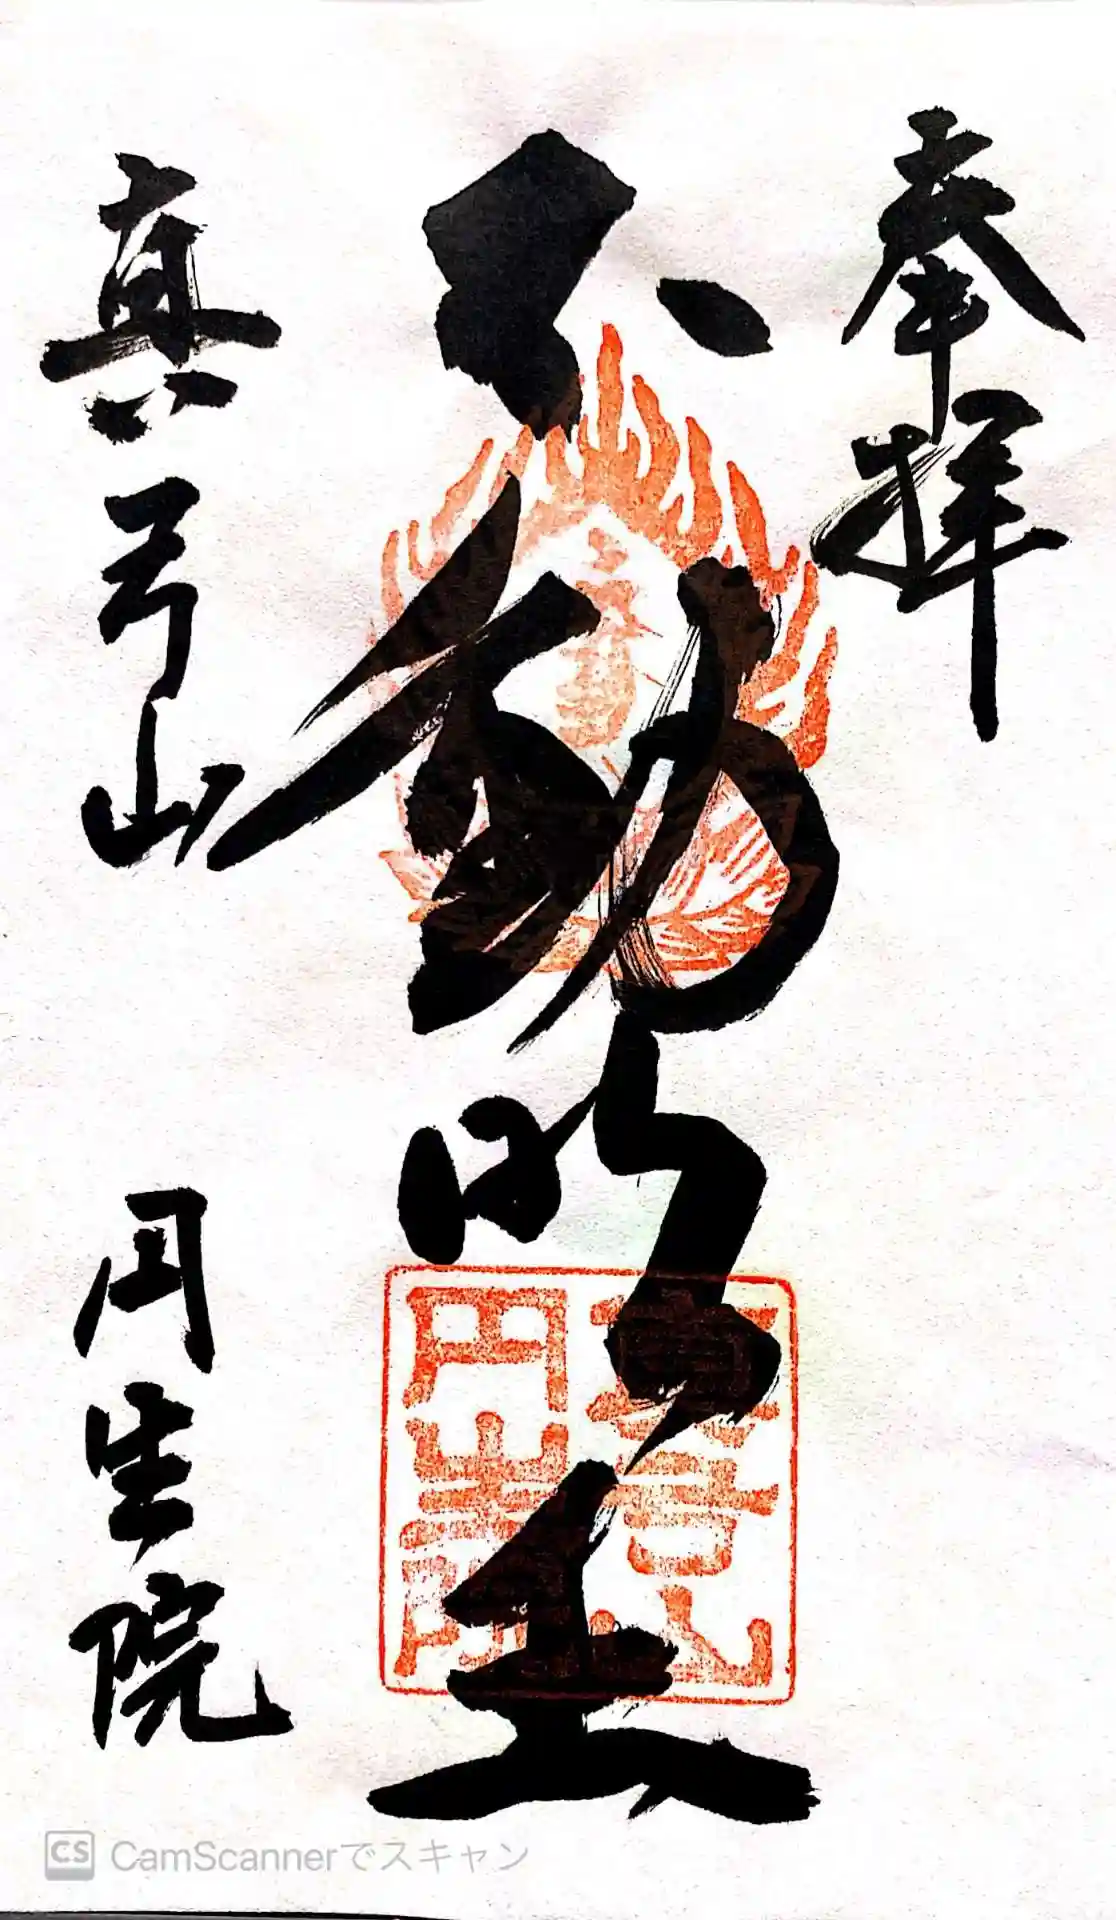 奉拝
不動明王
真弓山
円生院
真弓山
円生院
CS CamScannerでスキャン